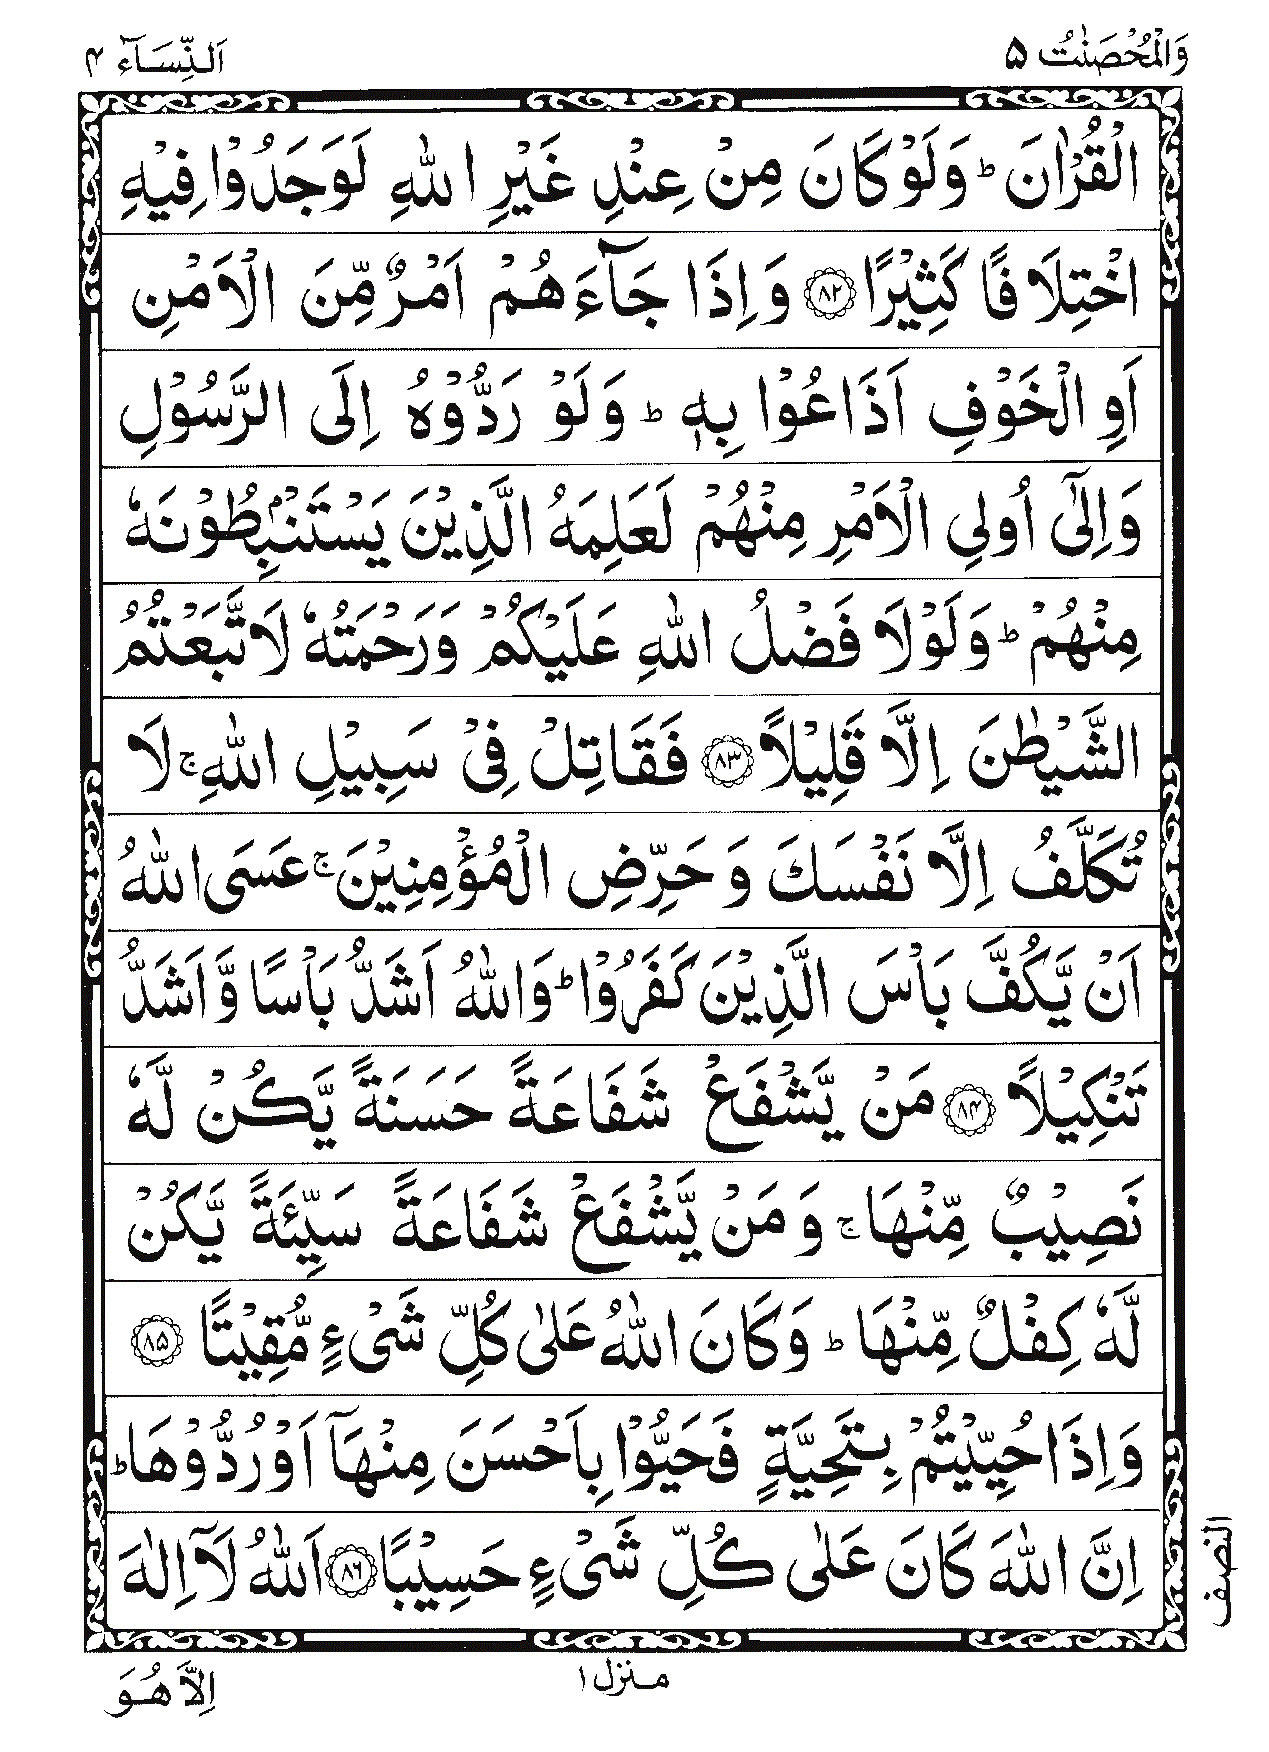 وَالْمُحْصَنٰتُ ۵ اَلنِّسَآء ۴
الْقُرْاٰنَ ؕ وَلَوْ كَانَ مِنْ عِنْدِ غَيْرِ اللّٰهِ لَوَجَدُوْا فِيْهِ
اخْتِلَافًا كَثِيْرًا ﴿۸۲﴾ وَاِذَا جَآءَهُمْ اَمْرٌ مِّنَ الْاَمْنِ
اَوِ الْخَوْفِ اَذَاعُوْا بِهٖ ؕ وَلَوْ رَدُّوْهُ اِلَى الرَّسُوْلِ
وَاِلٰٓى اُولِي الْاَمْرِ مِنْهُمْ لَعَلِمَهُ الَّذِيْنَ يَسْتَنْۢبِطُوْنَهٗ
مِنْهُمْ ؕ وَلَوْلَا فَضْلُ اللّٰهِ عَلَيْكُمْ وَرَحْمَتُهٗ لَاتَّبَعْتُمُ
الشَّيْطٰنَ اِلَّا قَلِيْلًا ﴿۸۳﴾ فَقَاتِلْ فِيْ سَبِيْلِ اللّٰهِ ۚ لَا
تُكَلَّفُ اِلَّا نَفْسَكَ وَحَرِّضِ الْمُؤْمِنِيْنَ ۚ عَسَى اللّٰهُ
اَنْ يَّكُفَّ بَاْسَ الَّذِيْنَ كَفَرُوْا ؕ وَاللّٰهُ اَشَدُّ بَاْسًا وَّاَشَدُّ
تَنْكِيْلًا ﴿۸۴﴾ مَنْ يَّشْفَعْ شَفَاعَةً حَسَنَةً يَّكُنْ لَّهٗ
نَصِيْبٌ مِّنْهَا ۚ وَمَنْ يَّشْفَعْ شَفَاعَةً سَيِّئَةً يَّكُنْ
لَّهٗ كِفْلٌ مِّنْهَا ؕ وَكَانَ اللّٰهُ عَلٰى كُلِّ شَيْءٍ مُّقِيْتًا ﴿۸۵﴾
وَاِذَا حُيِّيْتُمْ بِتَحِيَّةٍ فَحَيُّوْا بِاَحْسَنَ مِنْهَآ اَوْ رُدُّوْهَا ؕ
اِنَّ اللّٰهَ كَانَ عَلٰى كُلِّ شَيْءٍ حَسِيْبًا ﴿۸۶﴾ اَللّٰهُ لَآ اِلٰهَ
النصف
منزل ۱
اِلَّا هُوَ